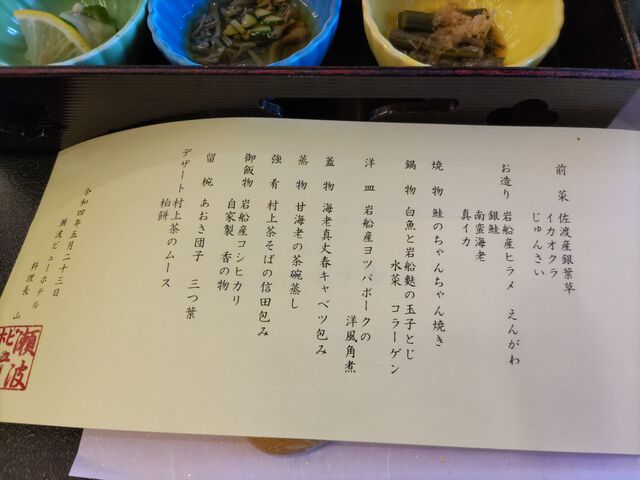 前菜 佐渡産銀葉草
イカオクラ
じゅんさい
お造り 岩船産ヒラメ えんがわ
銀鮭
南蛮海老
真イカ
焼物 鮭のちゃんちゃん焼き
鍋物 白魚と岩船麩の玉子とじ
水菜 コラーゲン
洋皿 岩船産ヨツバポークの
洋風角煮
蓋物 海老真丈春キャベツ包み
蒸物 甘海老の茶碗蒸し
強肴 村上茶そばの信田包み
御飯物 岩船産コシヒカリ
自家製 香の物
留椀 あおさ団子 三つ葉
デザート 村上茶のムース
柏餅
令和四年五月二十三日
瀬波ビューホテル
料理長 山
瀬波